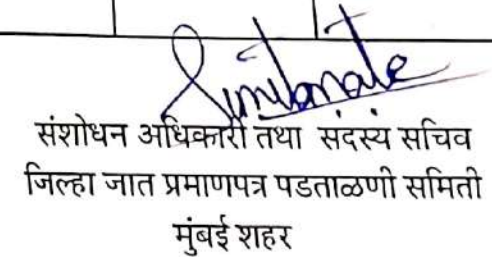 संशोधन अधिकारी तथा सदस्य सचिव
जिल्हा जात प्रमाणपत्र पडताळणी समिती
मुंबई शहर